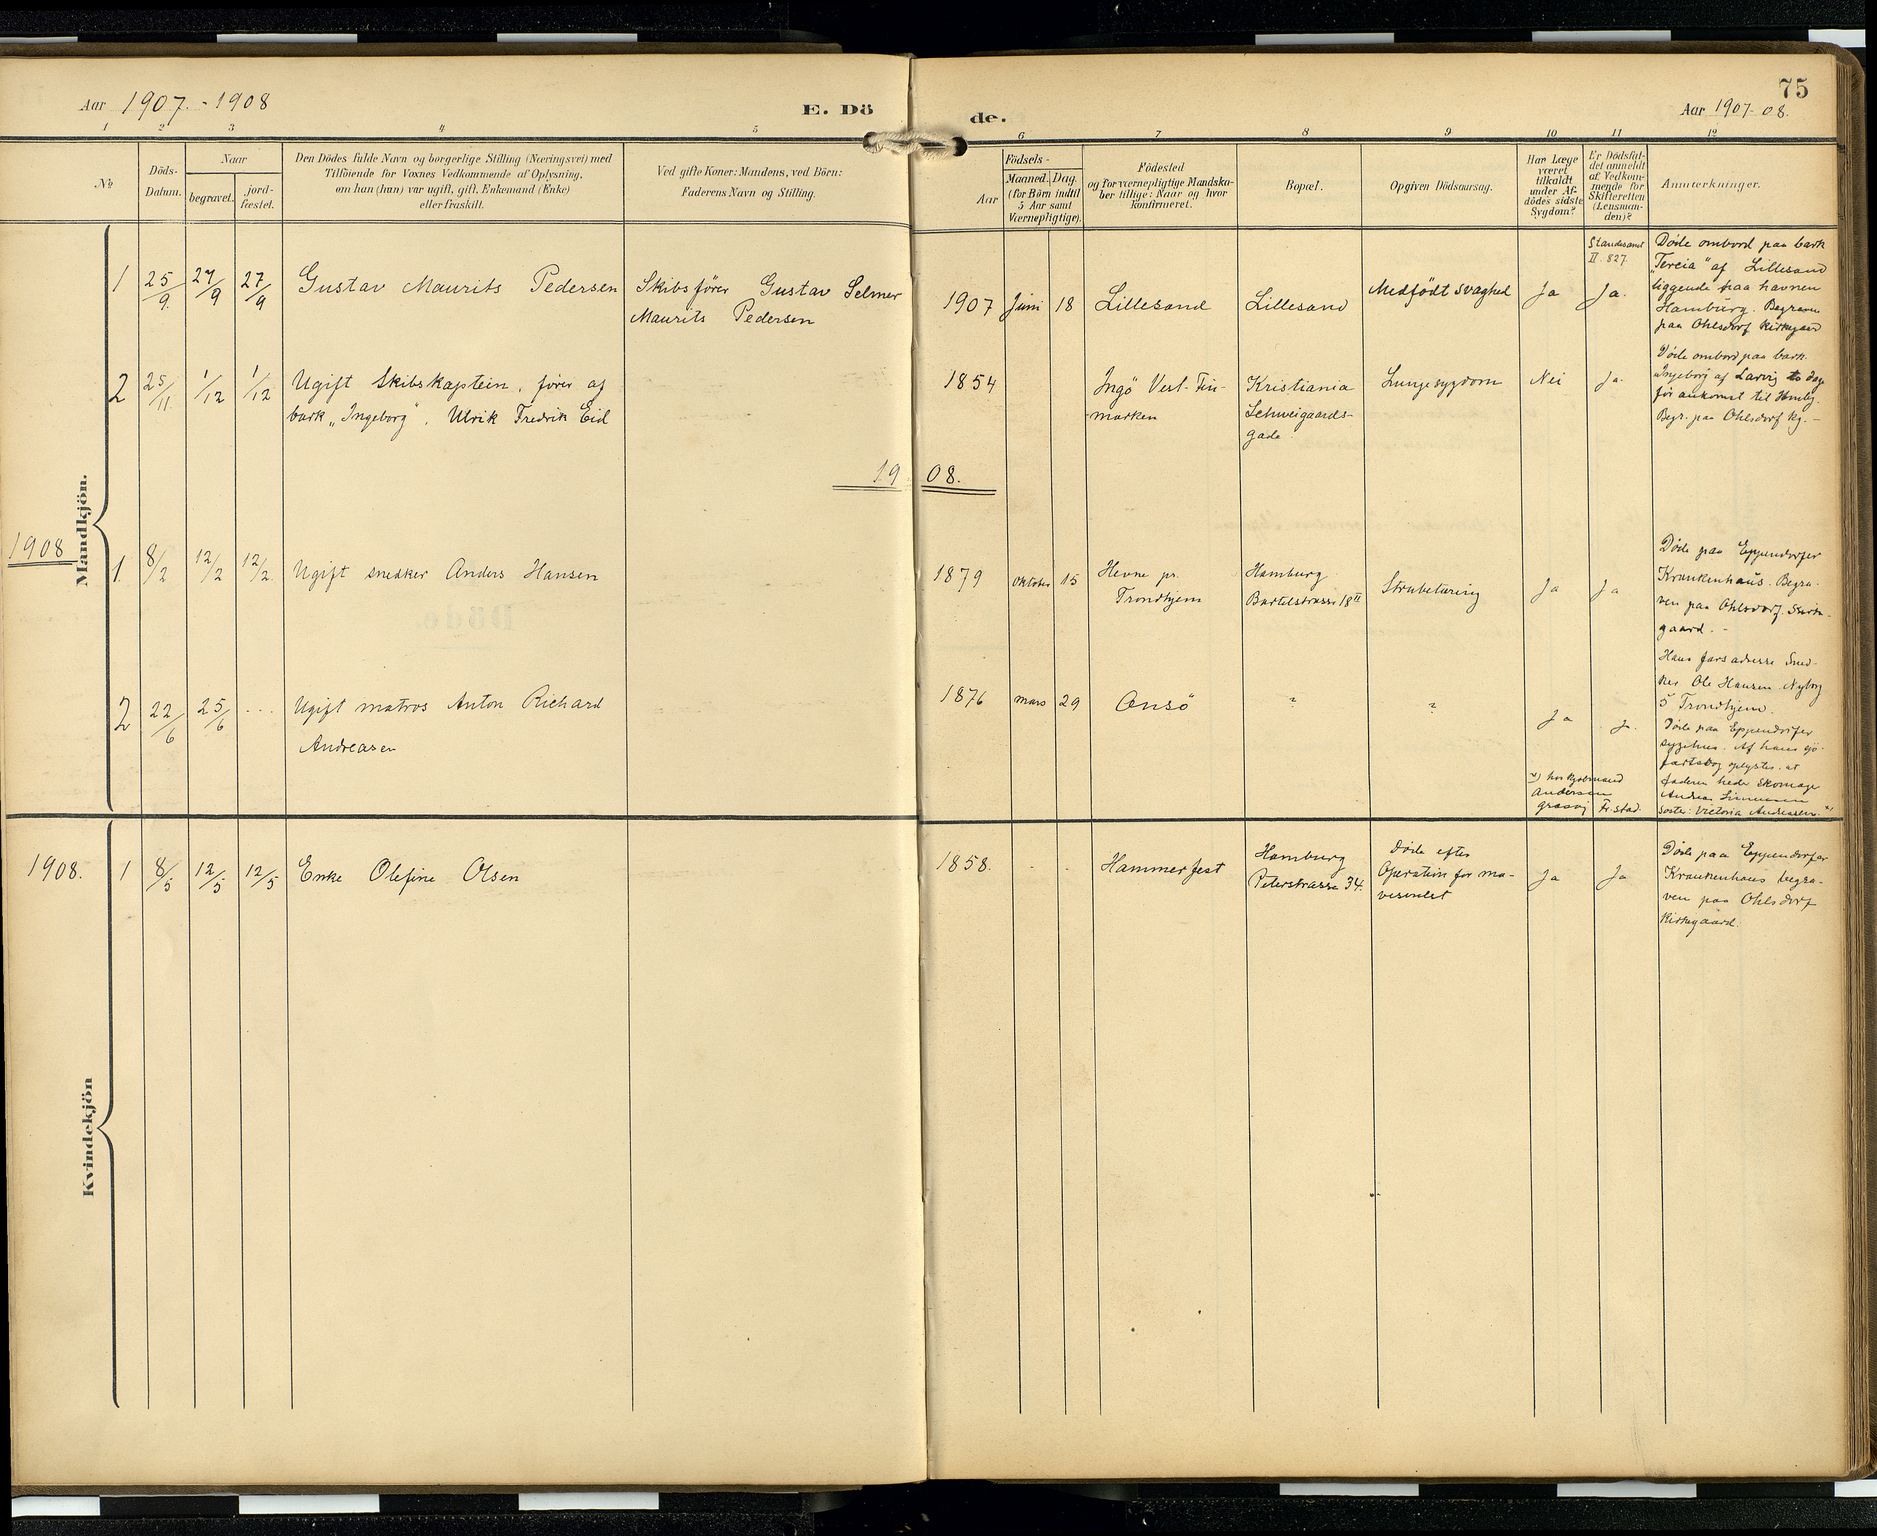 Aar 1907.-1908
E. Dö
de.
Aar 1907-08.
75
1 2 3 4 5 6 7 8 9 10 11 12
No
Döds-
Datum.
Naar
begravet.
jord-
fæstet.
Den Dödes fulde Navn og borgerlige Stilling (Næringsvei) med
Tilföiende for Voxnes Vedkommende af Oplysning,
om han (hun) var ugift, gift, Enkemand (Enke)
eller fraskilt.
Ved gifte Koner: Mandens, ved Börn:
Faderens Navn og Stilling.
Födsels-
Aar
Maaned. Dag.
(for Börn indtil
5 Aar samt
Værnepligtige).
Födested
og for værnepligtige Mandska-
ber tillige: Naar og hvor
konfirmeret.
Bopæl.
Opgiven Dödsaarsag.
Har Læge
været
tilkaldt
under Af-
dödes sidste
Sygdom?
Er Dödsfal-
det anmeldt
af Vedkom-
mende for
Skifteretten
(Lensman-
den)?
Anmærkninger.
Mandkjön.
1 25/9. 27/9 27/9 Gustav Maurits Pedersen
Skibsfører Gustav Selmer
Maurits Pedersen
1907 Juni 18 Lillesand Lillesand Medfödt svaghed Ja Ja.
Standesamt
II. 827.
Døde ombord paa bark
"Tercia" af Lillesand
liggende paa havnen
Hamburg. Begraven
paa Ohlsdorf Kirkegaard
2 25/11. 1/12 1/12 Ugift Skibskaptein, fører af
bark "Ingeborg", Ulrik Fredrik Eid
1854 Ingö Vest-Fin-
marken
Kristiania
Schweigaards-
gade.
Lungesygdom Nei Ja.
Døde ombord paa bark
"Ingeborg af Larvig to dage
før ankomst til Hmbg.
Begr. paa Ohlsdorf Kg. -
1908.
1908
1. 8/2 12/2 12/2. Ugift snedker Anders Hansen
1879 Oktober 15 Hevne pr.
Trondhjem
Hamburg
Bartelstrasse 18 II
Strubetæring Ja Ja
Døde paa Eppendorfer
Krankenhaus. Begra-
ven paa Ohlsdorf. Kirke-
gaard. -
Hans fars adresse Sned-
ker Ole Hansen. Nyborg
5 Trondhjem.
2 22/6 25/6 ... Ugift matros Anton Richard
Andreasen
1876 mars 29 Onsö ? ? Ja Ja.
Døde paa Eppendorfer
sygehus. Af hans sjö-
fartsbog oplystes. at
faderen hede Skomager
Andreas Simensen
søster: Victoria Andreasen. x)
x) hos Kjøbmand
Andersen
græsvig Fr.stad.
Kvindekjön
1908. 1 8/5 12/5 12/5 Enke Olefine Olsen
1858. - - Hammerfest
Hamburg
Peterstrasse 34.
Døde efter
Operation for ma-
vesvulst
Ja Ja
Døde paa Eppendorfer
Krankenhaus begra-
ven paa Ohlsdorf
Kirkegaard.